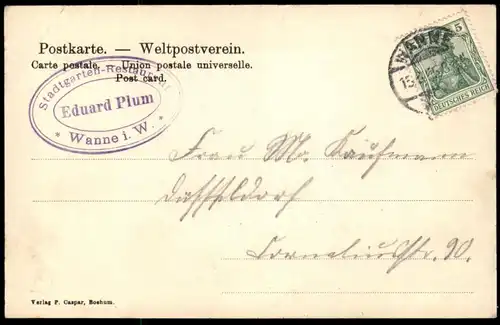 Postkarte. — Weltpostverein.
Carte postale. Union postale universelle.
Post card.
Stadtgarten-Restaurant
Eduard Plum
* Wanne i. W. *
WANNE
5
DEUTSCHES REICH
Frau M. Kaufmann
Düsseldorf
Corneliusstr. 90.
Verlag P. Caspar, Bochum.